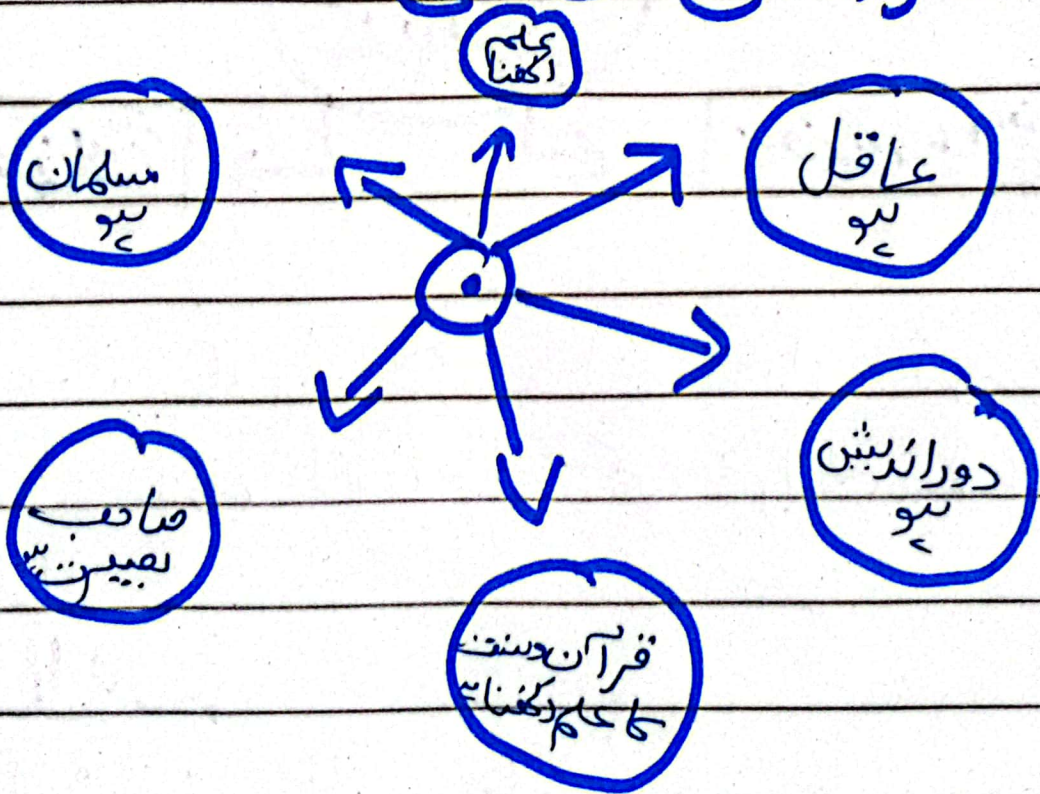 علم
رکھنا
عاقل
ہو
مسلمان
ہو
دوراندیش
ہو
صاحب
بصیرت
قرآن وسنت
کا علم رکھنا